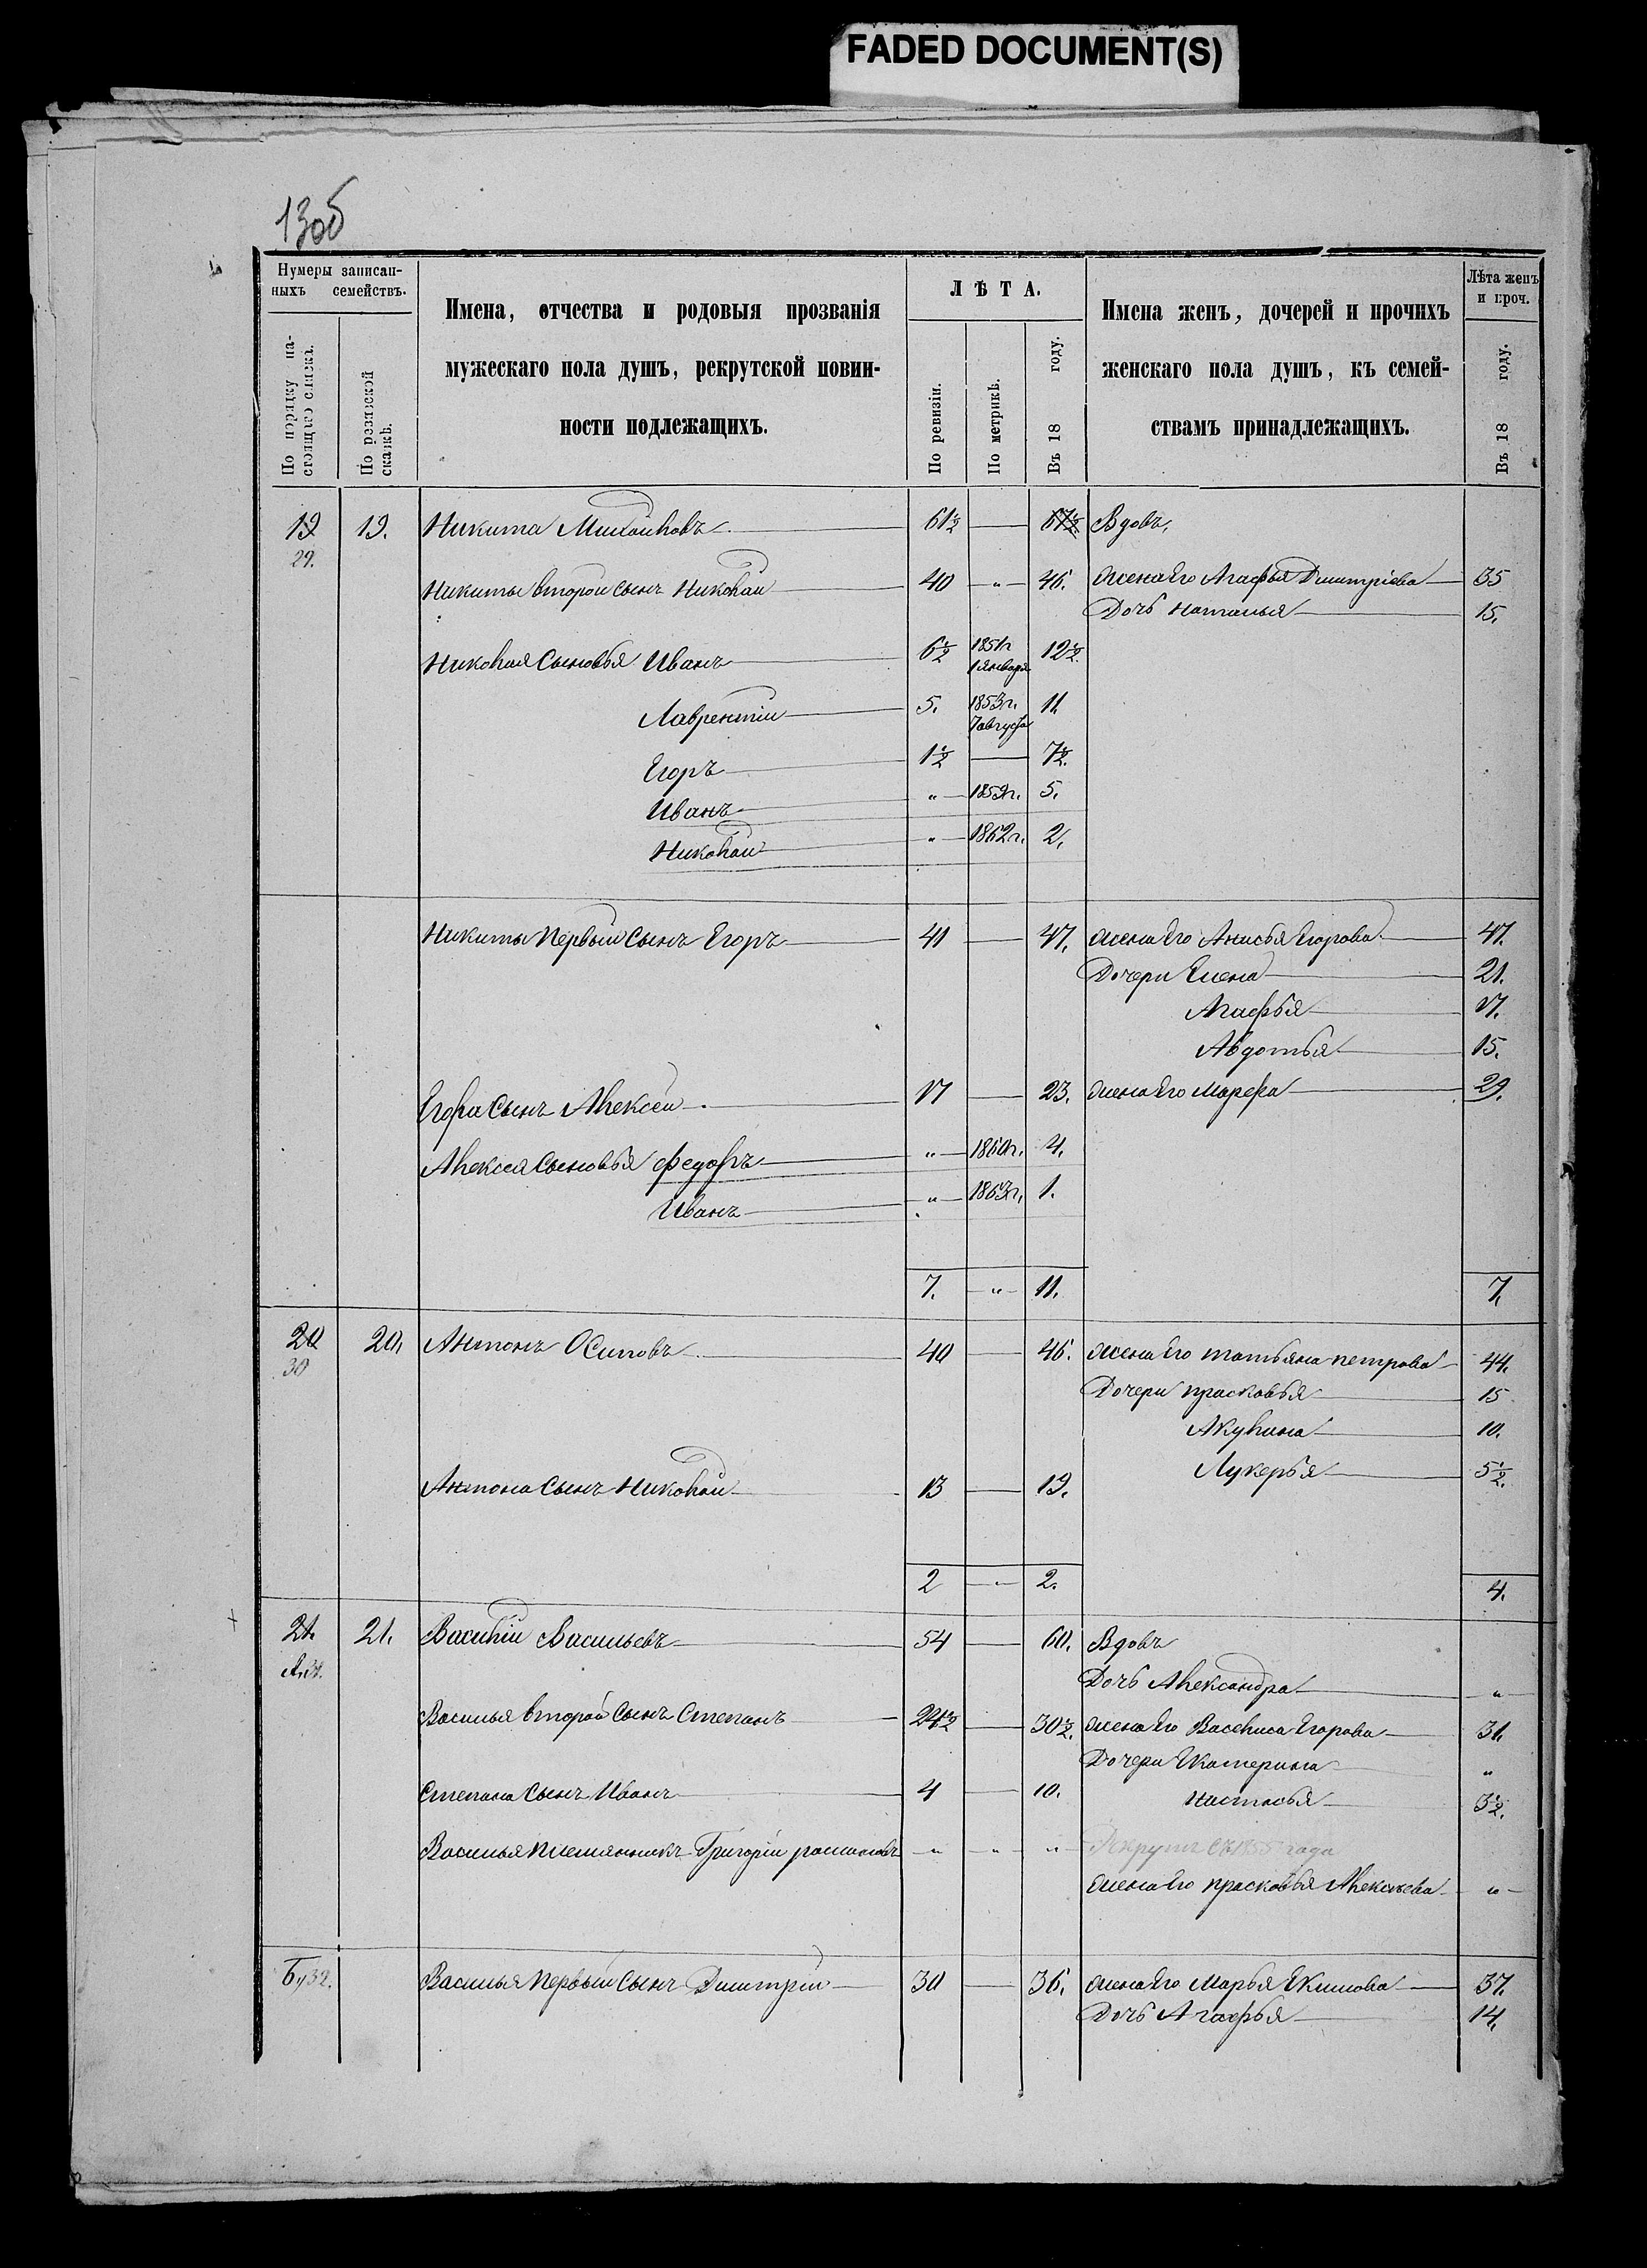 FADED DOCUMENT(S)
13об
Нумеры записан-
ныхъ семействъ.
По порядку на-
стоящаго списка.
По ревизской
сказкѣ.
Имена, отчества и родовыя прозванія
мужескаго пола душъ, рекрутской повин-
ности подлежащихъ.
ЛѢТА.
По ревизіи.
По метрикѣ.
Въ 18 году.
Имена женъ, дочерей и прочихъ
женскаго пола душъ, къ семей-
ствамъ принадлежащихъ.
Лѣта женъ
и проч.
Въ 18 году.
19 19. Никита Михайловъ 61½ 67½ Вдовъ.
29.
Никиты второй сынъ Николай 40 " 46. жена его Агафья Дмитріева 35
Дочь Наталья 15.
Николая сыновья Иванъ 6½ 1851г. 1 января 12½
Лаврентій 5. 1853г. 7 августа 11.
Егоръ 1½ 7½.
Иванъ " 1859г. 5.
Николай " 1862г. 2.
Никиты первый сынъ Егоръ 41 47. жена его Анисья Егорова 47.
Дочери Елена 21.
Агафья 17.
Авдотья 15.
Егора сынъ Алексей 17 23. жена его Марфа 29.
Алексея сыновья Федоръ " 1860г. 4.
Иванъ " 1863г. 1.
7. " 11. 7.
20 20. Антонъ Осиповъ 40 46. жена его Татьяна Петрова 44.
30
Дочери Прасковья 15
Акулина 10.
Лукерья 5½.
Антона сынъ Николай 13 19.
2 " 2. 4.
21. 21. Василій Васильевъ 54 60. Вдовъ
А.31.
Дочь Александра "
Василья второй сынъ Степанъ 24½ 30½. жена его Василиса Егорова 31.
Дочери Екатерина "
Степана сынъ Иванъ 4 10. Настасья 3½.
Василья племянникъ Григорій " " " Рекрутъ съ 1855 года
жена его Прасковья Алексѣева "
Б,32. Василья первый сынъ Дмитрій 30 36. жена его Марья Екимова 37.
Дочь Агафья 14.